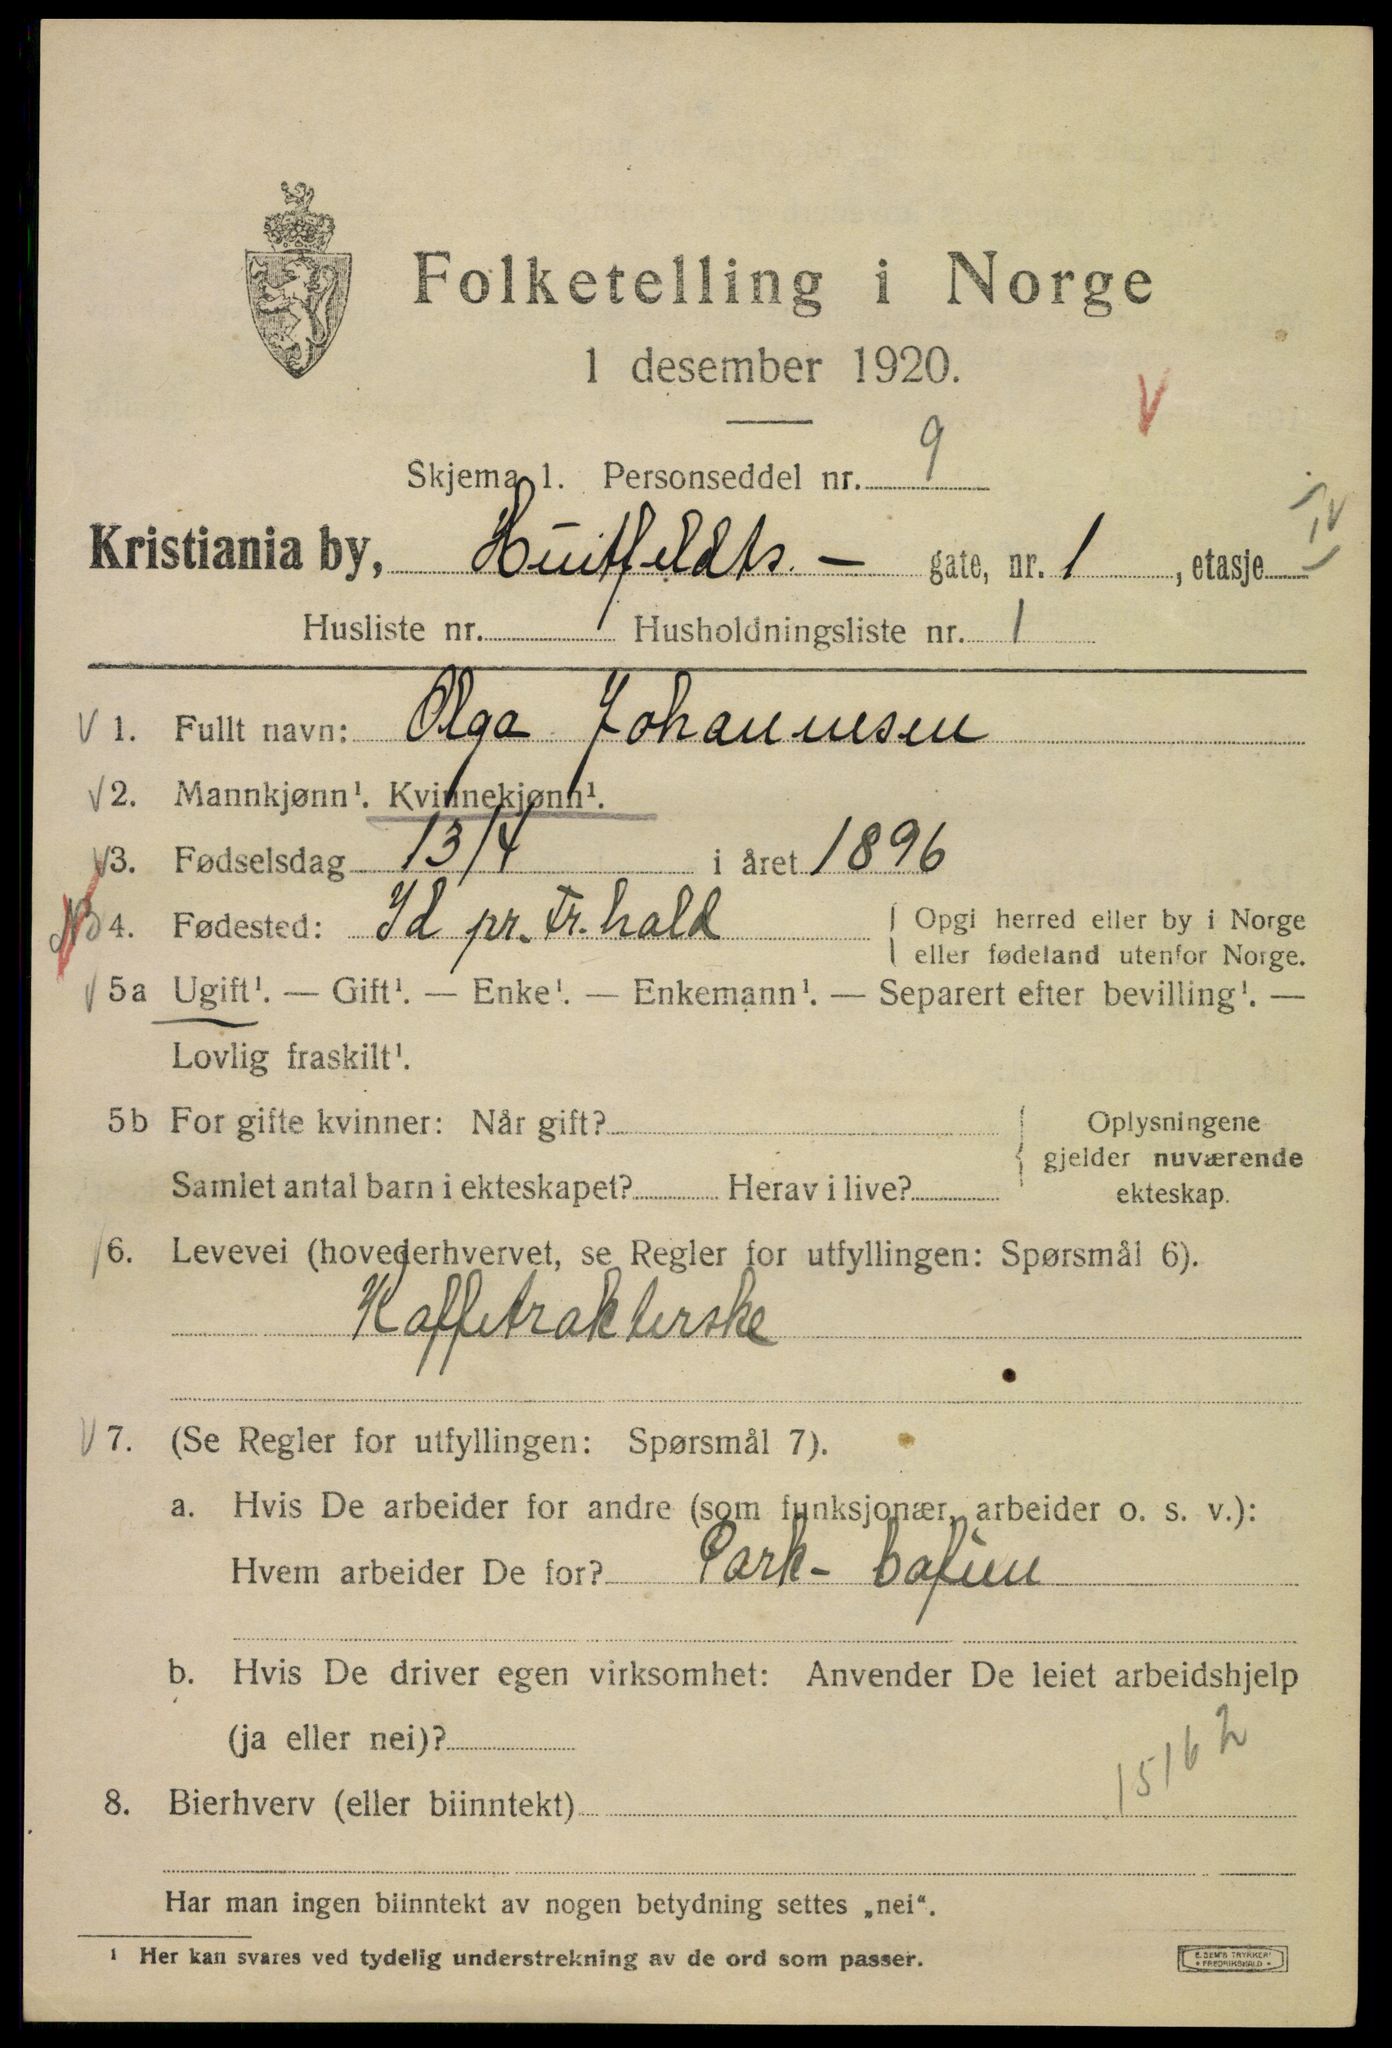 Folketelling i Norge
1 desember 1920.
Skjema 1. Personseddel nr. 9
Kristiania by, Huitfeldts - gate, nr. 1, etasje IV
Husliste nr. Husholdningsliste nr. 1
1. Fullt navn: Olga Johannesen
2. Mannkjønn¹. Kvinnekjønn¹.
3. Fødselsdag 13/4 i året 1896
4. Fødested: Id pr. Fr.hald Opgi herred eller by i Norge
eller fødeland utenfor Norge.
5a Ugift¹. — Gift¹. — Enke¹. — Enkemann¹. — Separert efter bevilling¹. —
Lovlig fraskilt¹.
5b For gifte kvinner: Når gift? Oplysningene
gjelder nuværende
Samlet antal barn i ekteskapet? Herav i live? ekteskap.
6. Levevei (hovederhvervet, se Regler for utfyllingen: Spørsmål 6).
Kaffetrakterske
7. (Se Regler for utfyllingen: Spørsmål 7).
a. Hvis De arbeider for andre (som funksjonær, arbeider o. s. v.):
Hvem arbeider De for? Park-cafeen
b. Hvis De driver egen virksomhet: Anvender De leiet arbeidshjelp
(ja eller nei)?
15162
8. Bierhverv (eller biinntekt)
Har man ingen biinntekt av nogen betydning settes „nei“.
¹ Her kan svares ved tydelig understrekning av de ord som passer.
E. SEM'S TRYKKERI
FREDRIKSHALD